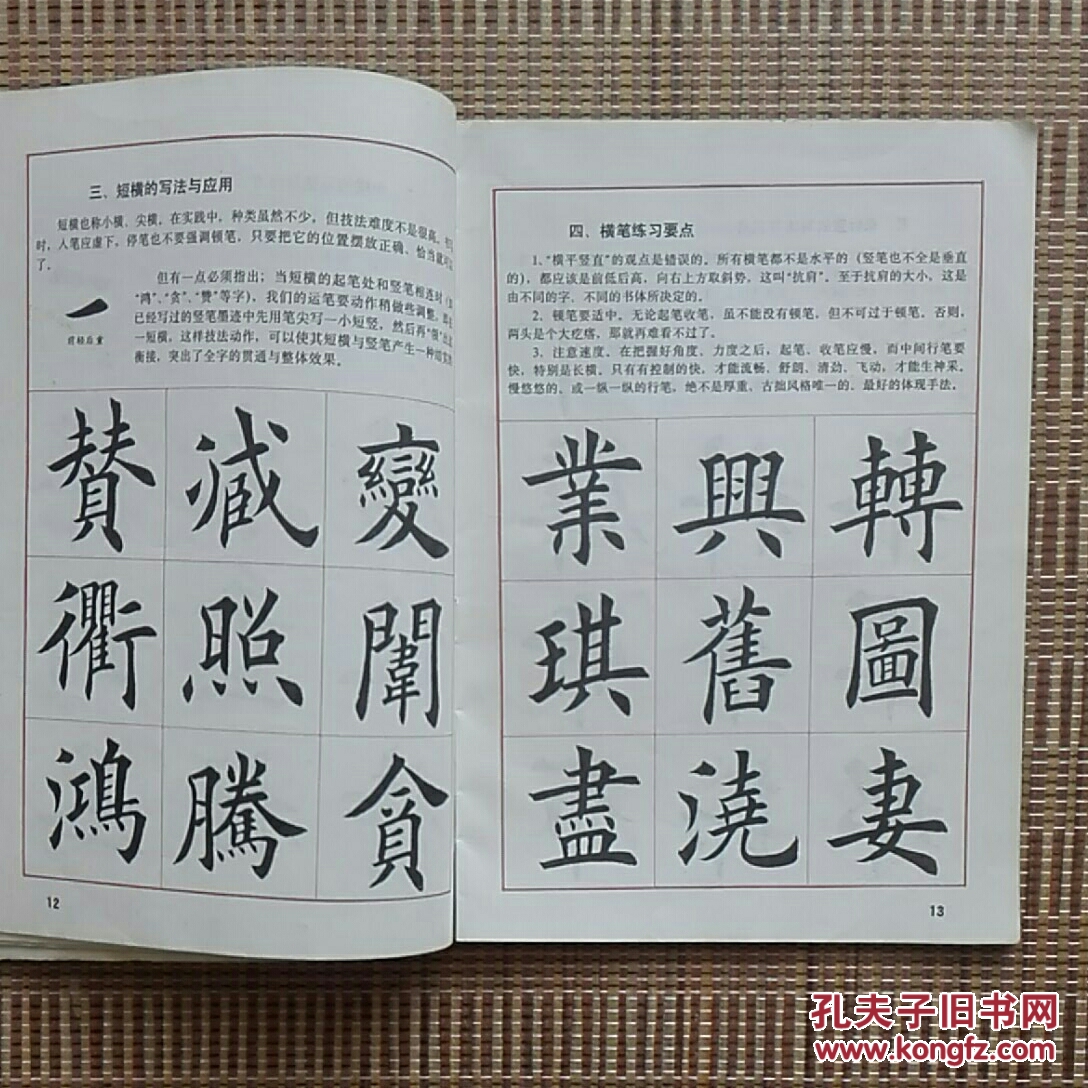 三、短横的写法与应用
短横也称小横、尖横，在实践中，种类虽然不少，但技法难度不是很高，书写
时，人笔应虚下，停笔也不要强调顿笔，只要把它的位置摆放正确、恰当就可以
了。
但有一点必须指出；当短横的起笔处和竖笔相连时（如
“鸿”、“贪”、“赞”等字），我们的运笔要动作稍做些调整，即在
已经写过的竖笔墨迹中先用笔尖写一小短竖，然后再“领”出这
一短横，这样技法动作，可以使其短横与竖笔产生一种切实的
衔接，突出了全字的贯通与整体效果。
前轻后重
贊 减 變
衢 照 闈
鴻 騰 貪
12
四、横笔练习要点
1．“横平竖直”的观点是错误的。所有横笔都不是水平的（竖笔也不全是垂直
的），都应该是前低后高，向右上方取斜势，这叫“抗肩”。至于抗肩的大小，这是
由不同的字、不同的书体所决定的。
2．顿笔要适中。无论起笔收笔，虽不能没有顿笔，但不可过于顿笔，否则，
两头是个大疙瘩，那就再难看不过了。
3．注意速度。在把握好角度、力度之后，起笔、收笔应慢，而中间行笔要
快，特别是长横。只有有控制的快，才能流畅、舒朗、清劲、飞动，才能生神采。
慢悠悠的、或一纵一纵的行笔，绝不是厚重、古拙风格唯一的、最好的体现手法。
業 興 轉
琪 舊 圖
盡 澆 妻
13
孔夫子旧书网
www.kongfz.com